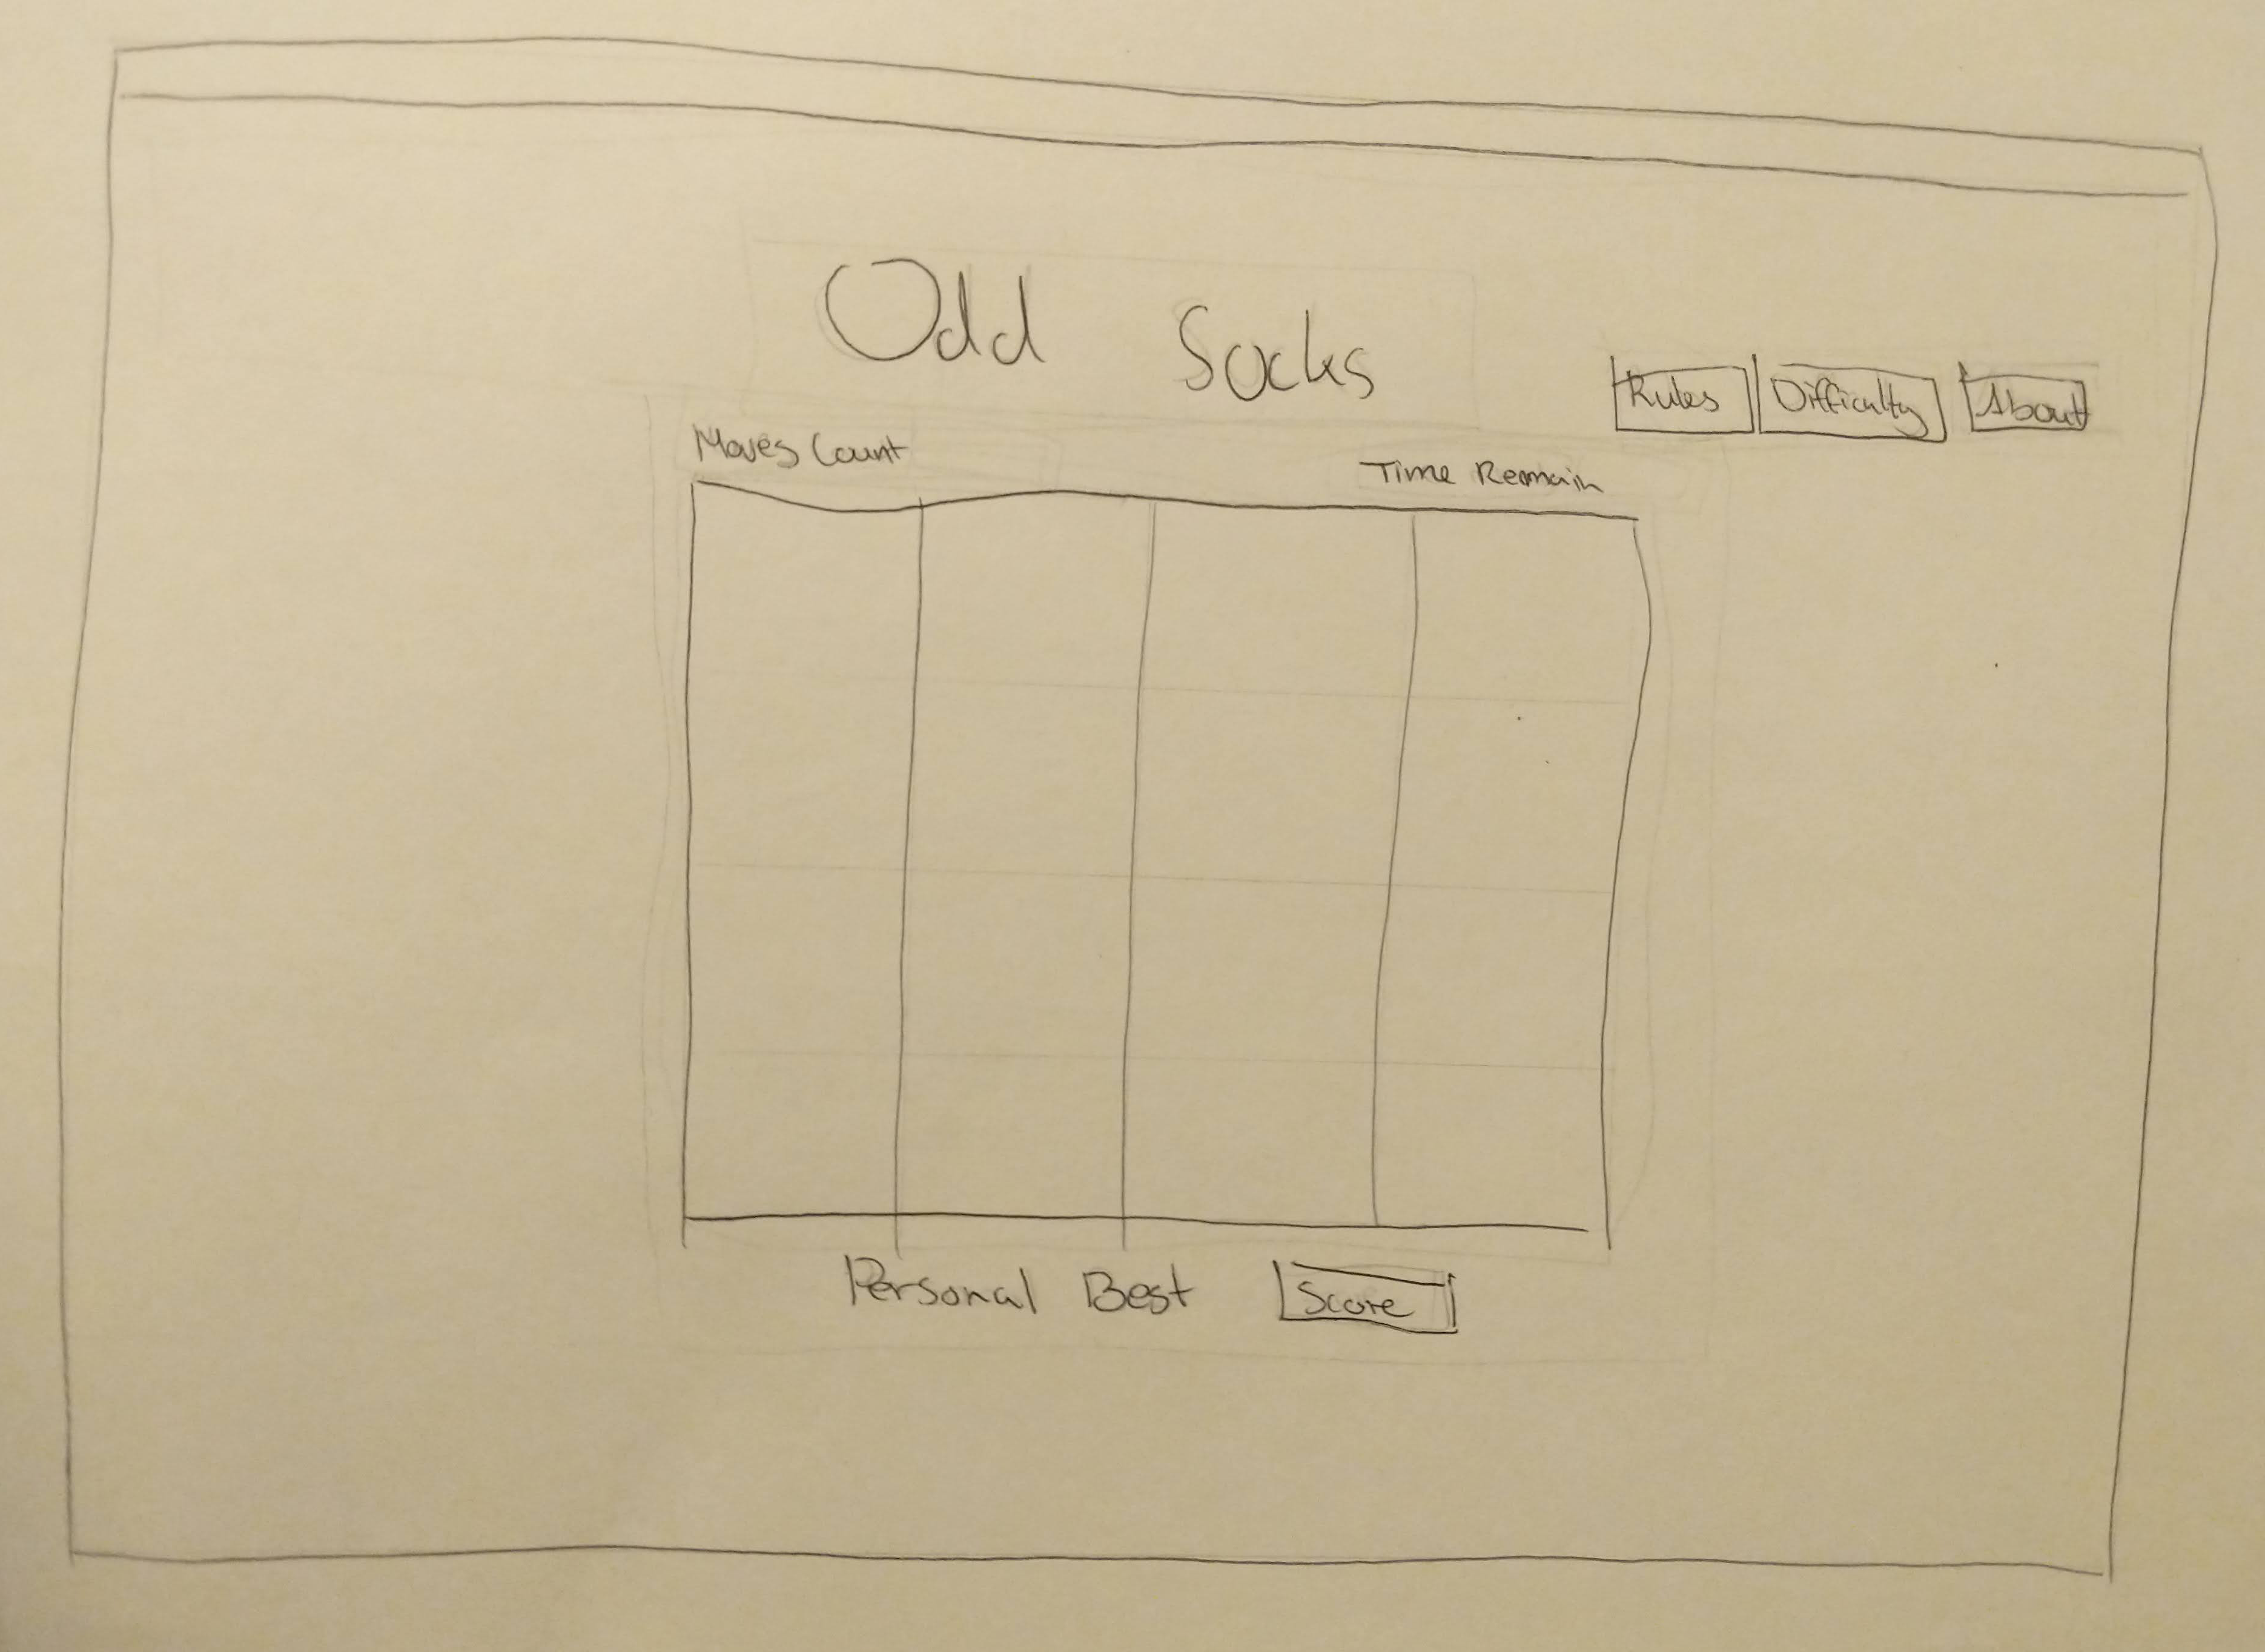 Odd Socks
Rules Difficulty About
Moves Count
Time Remain
Personal Best Score